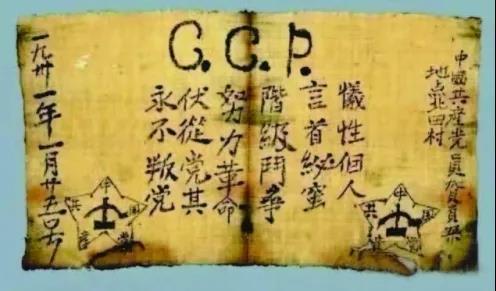 C.C.P.
中國共産党員
地点 田村
犧性個人
言首秘蜜
階級鬥爭
努力革命
伏從党其
永不叛党
一九卅一年一月廿五号
中國共産黨
中國共産黨